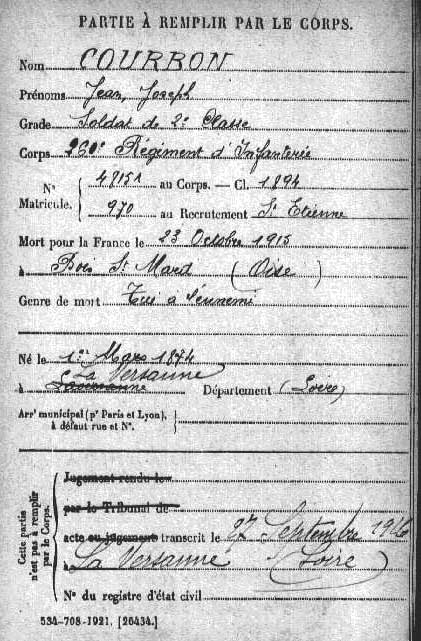 PARTIE À REMPLIR PAR LE CORPS.
Nom COURBON
Prénoms Jean, Joseph
Grade Soldat de 2e Classe
Corps 260e Régiment d'Infanterie
N° Matricule. { 48151 au Corps. — Cl. 1894
970 au Recrutement St Etienne
Mort pour la France le 23 Octobre 1915
à Bois St Mard (Oise)
Genre de mort Tué à l'ennemi
Né le 1er Mars 1874
La Versanne
à Département (Loire)
Arrt municipal (pr Paris et Lyon), à défaut rue et N°.
Cette partie n'est pas à remplir par le Corps.
Jugement rendu le
par le Tribunal de
acte ou jugement transcrit le 27 Septembre 1916
à La Versanne (Loire)
N° du registre d'état civil
534-708-1921. [26434.]